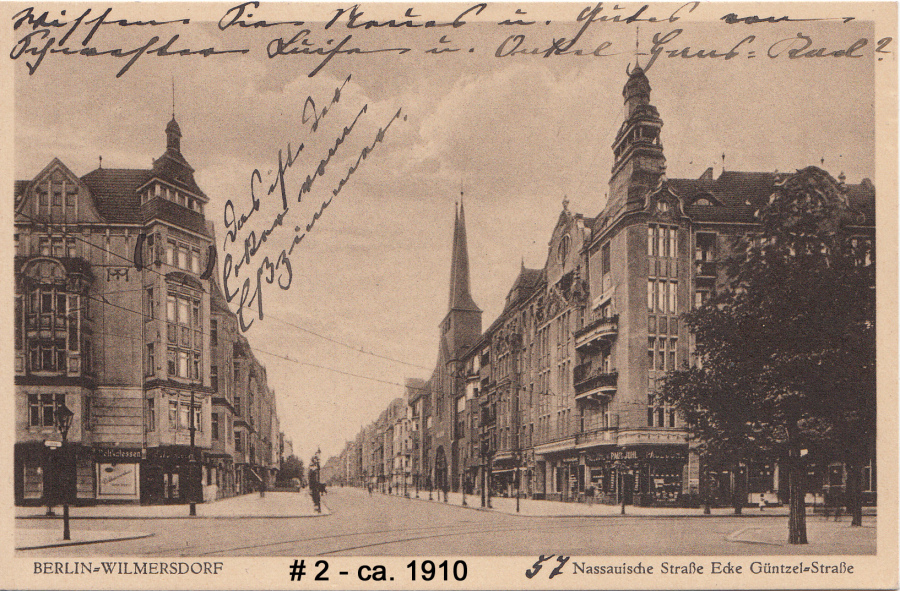 Wissen Sie Neues u. Gutes von
Schwester Luise u. Onkel Hans-Rad?
Das ist der
Erker vom
Eßzimmer.
Delikatessen
PAUL JUHL
BERLIN-WILMERSDORF
# 2 - ca. 1910
57 Nassauische Straße Ecke Güntzel-Straße